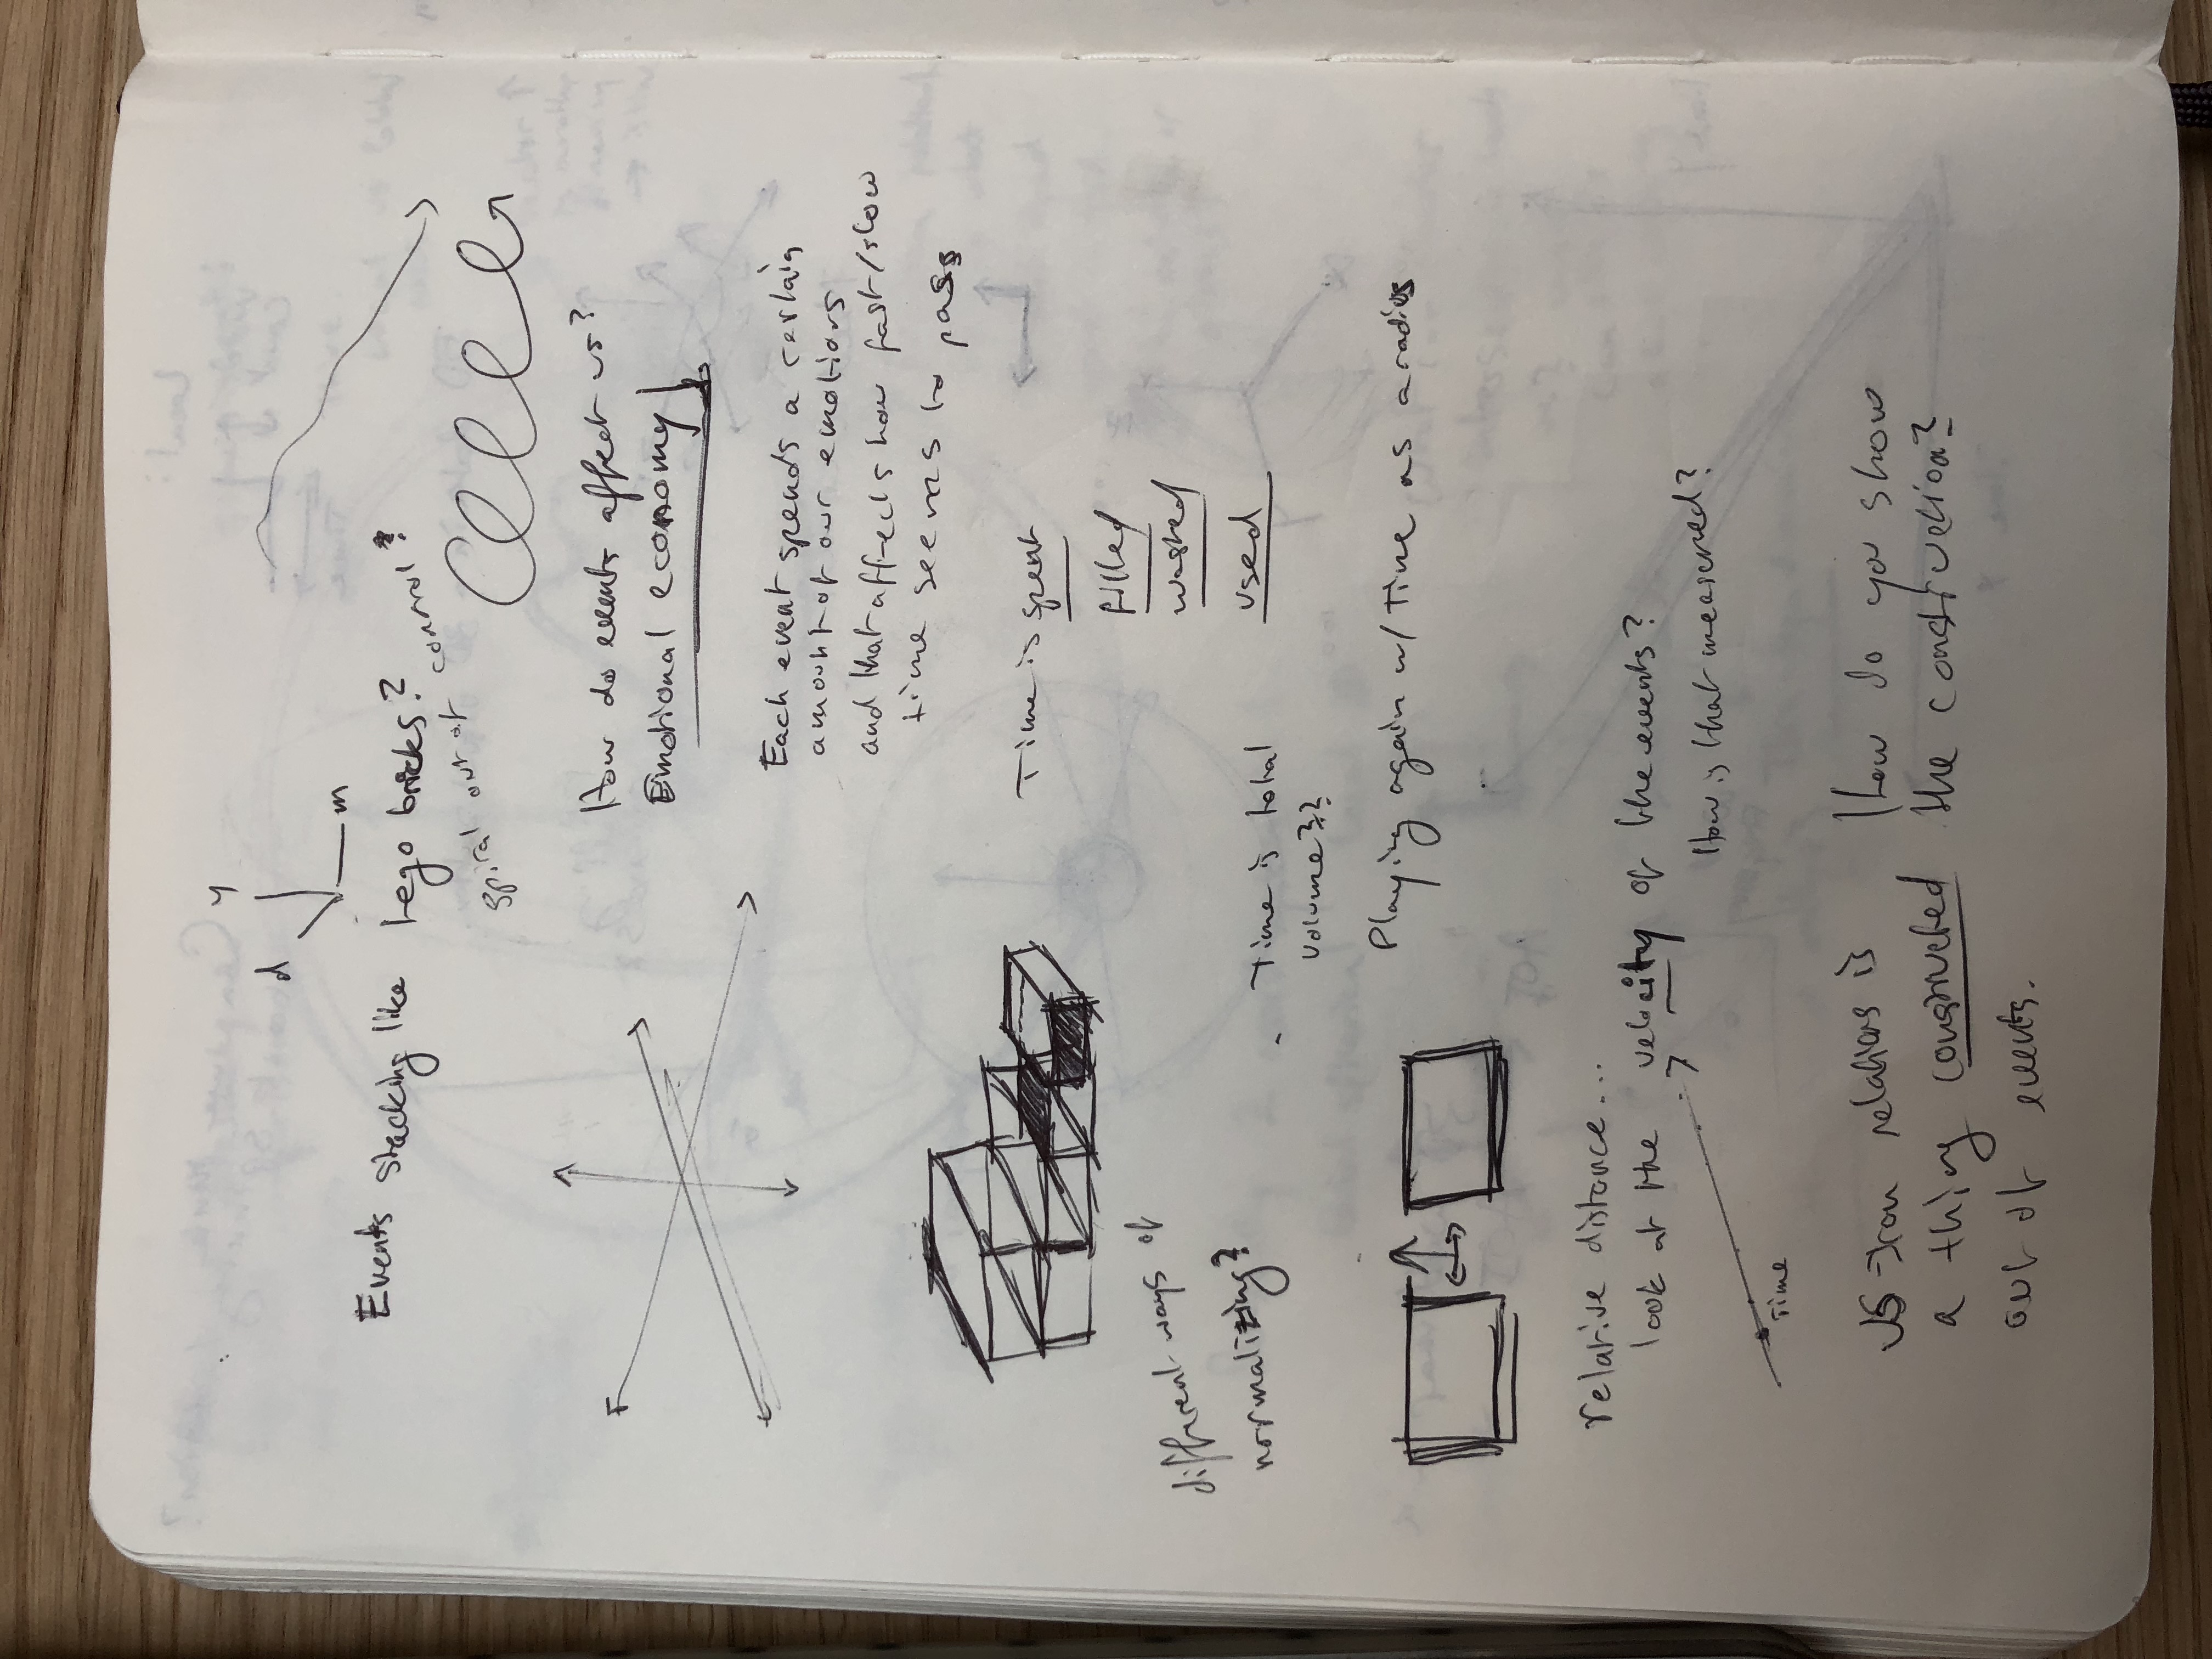 y
d
m
Events stacking like Lego bricks?
spiral out of control?
How do events affect us?
Emotional economy
Each event spends a certain
amount of our emotions
and that affects how fast/slow
time seems to pass
Time is spent
filled
wasted
used
different ways of
normalizing?
Time is total
volume??
Playing again w/ Time as a radius
relative distance...
look at the velocity of the events?
How is that measured?
Time
US-Iran relations is
a thing constructed
out of events.
How do you show
the construction?